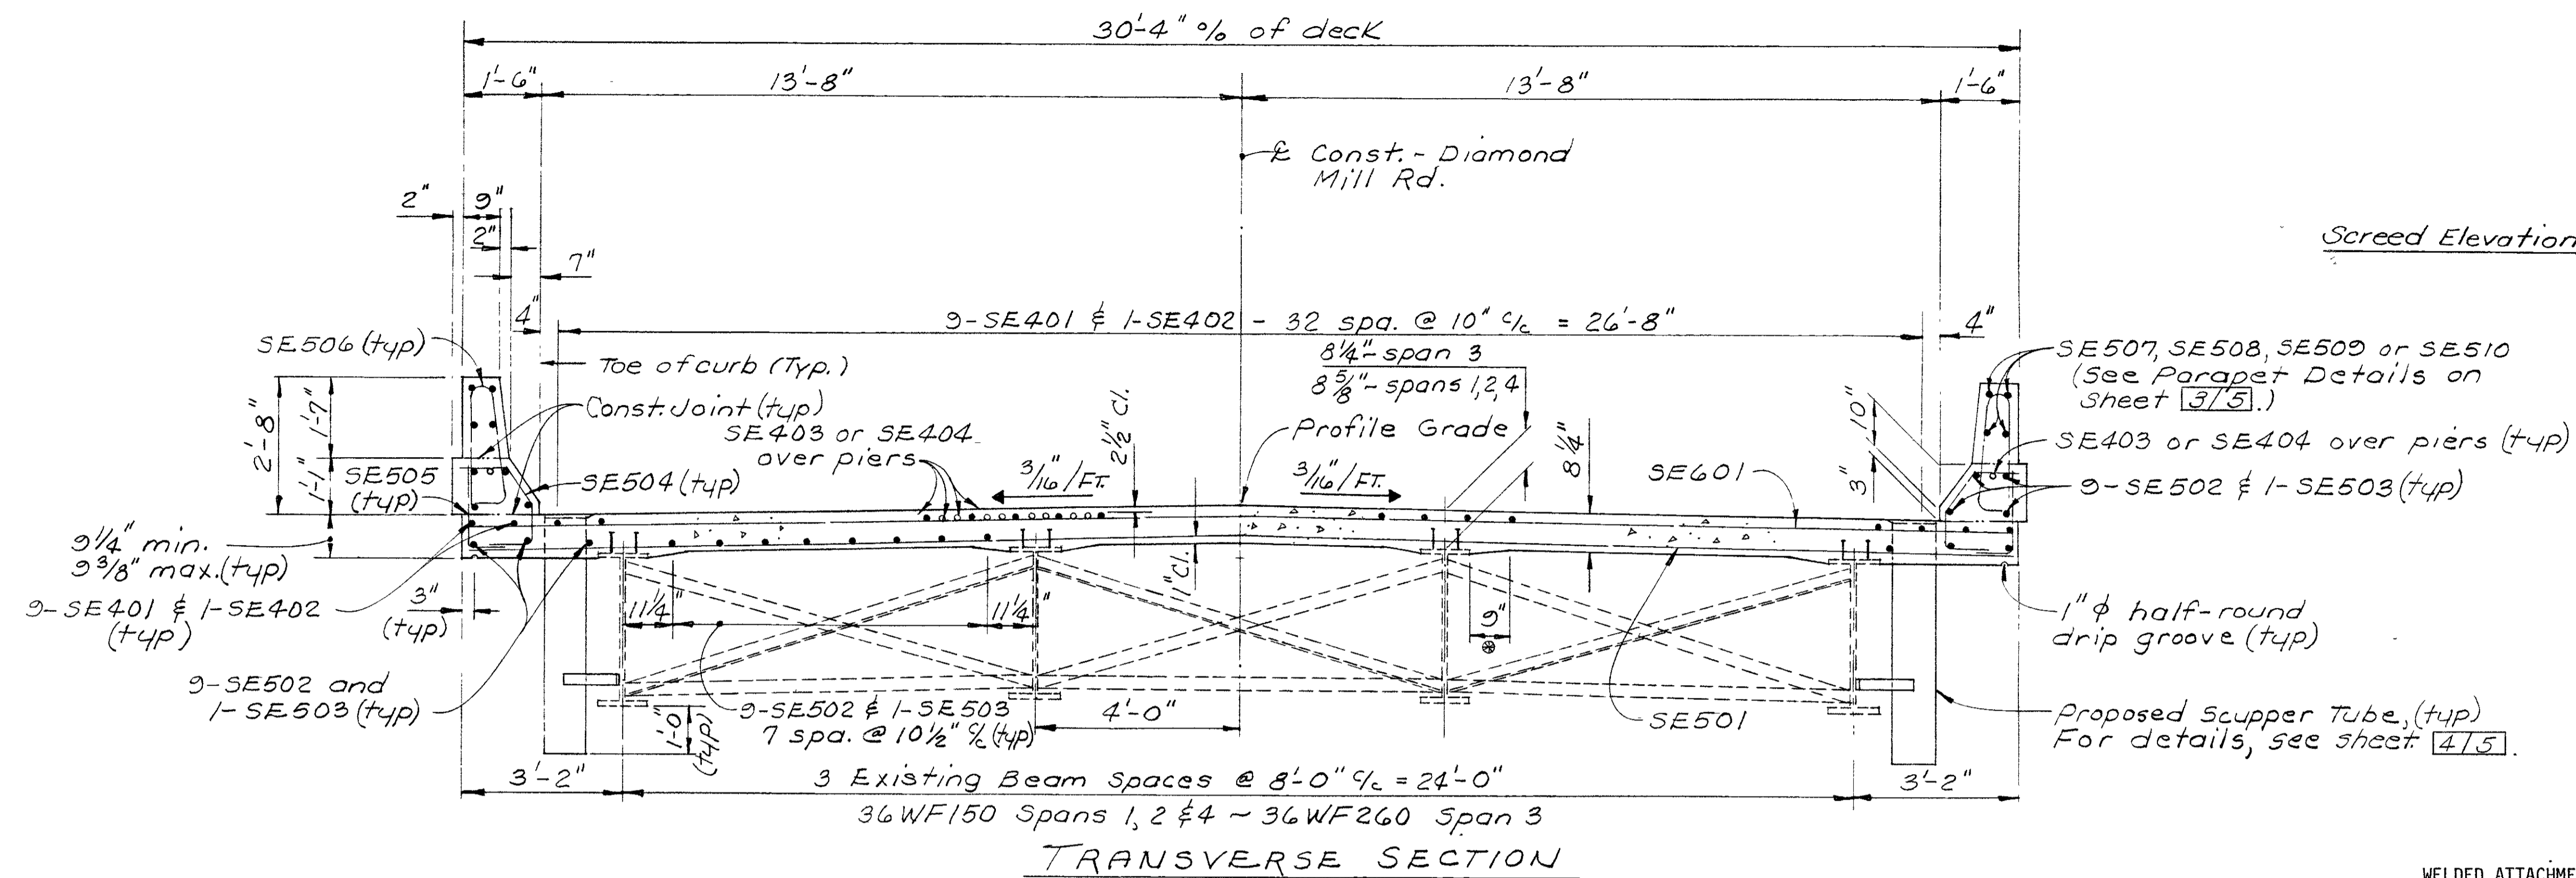 30'-4" o/o of deck
1'-6"
13'-8"
13'-8"
1'-6"
℄ Const. - Diamond
Mill Rd.
2"
9"
2"
7"
4"
Screed Elevation
9-SE401 & 1-SE402 - 32 spa. @ 10" c/c = 26'-8"
4"
SE506 (typ)
Toe of curb (Typ.)
8 1/4"- span 3
8 5/8"- spans 1,2,4
SE507, SE508, SE509 or SE510
(See Parapet Details on
Sheet 3/5.)
2'-8"
1'-7"
1'-1"
Const. Joint (typ)
SE403 or SE404
over piers
2 1/2" Cl.
Profile Grade
8 1/4"
10"
3"
SE403 or SE404 over piers (typ)
SE505
(typ)
SE504 (typ)
3/16"/FT.
3/16"/FT.
SE601
9-SE502 & 1-SE503 (typ)
9 1/4" min.
9 3/8" max. (typ)
1" Cl.
9-SE401 & 1-SE402
(typ)
3"
(typ)
11 1/4"
11 1/4"
9"
1" ϕ half-round
drip groove (typ)
9-SE502 and
1-SE503 (typ)
1'-0"
(typ)
9-SE502 & 1-SE503
7 spa. @ 10 1/2" c/c (typ)
4'-0"
SE501
Proposed Scupper Tube, (typ)
For details, see sheet 4/5.
3'-2"
3 Existing Beam Spaces @ 8'-0" c/c = 24'-0"
3'-2"
36WF150 Spans 1, 2 & 4 ~ 36WF260 Span 3
TRANSVERSE SECTION
WELDED ATTACHME